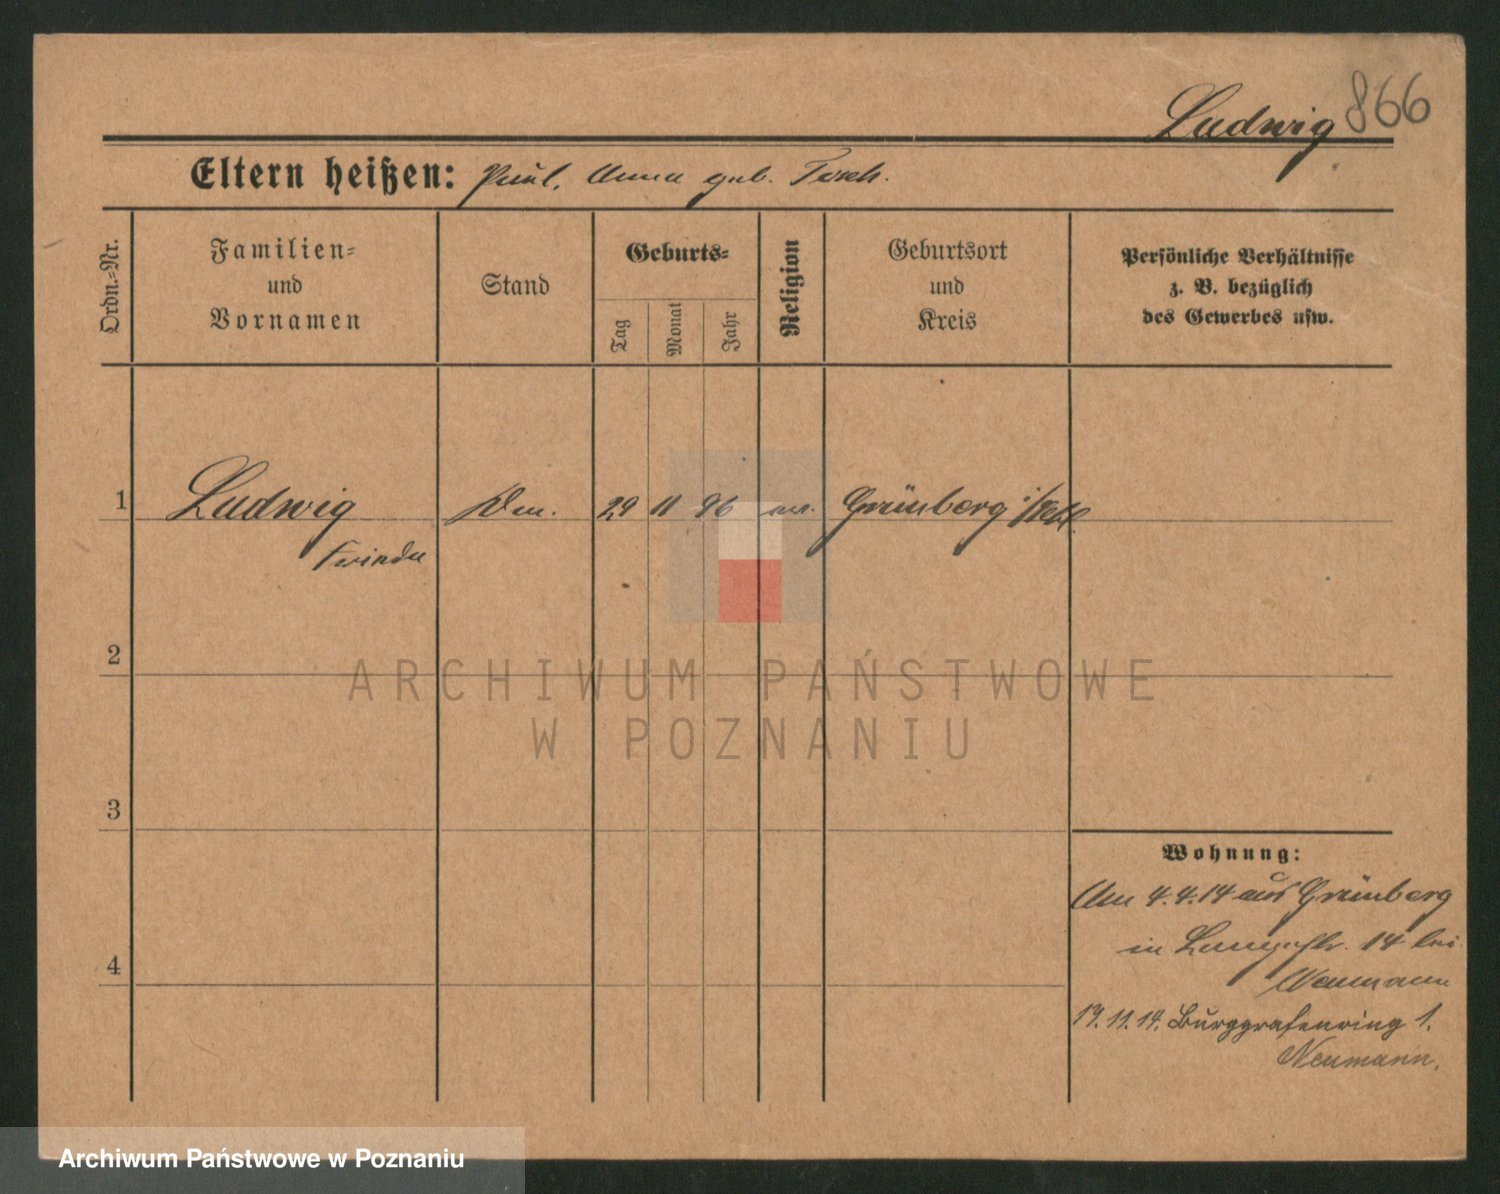 Ludwig 866
Eltern heißen: Paul, Anna geb.
Ordn.-Nr.
Familien-
und
Vornamen
Stand
Geburts-
Tag
Monat
Jahr
Religion
Geburtsort
und
Kreis
Persönliche Verhältnisse
z. B. bezüglich
des Gewerbes usw.
1 Ludwig 29 11 96 ev. Grünberg i/Schl.
Frieda
2
3
4
Wohnung:
Am 4.4.14 aus Grünberg
in Langestr. 14 bei
Neumann
17.11.14. Burggrafenring 1.
Neumann.
ARCHIWUM PAŃSTWOWE
W POZNANIU
Archiwum Państwowe w Poznaniu